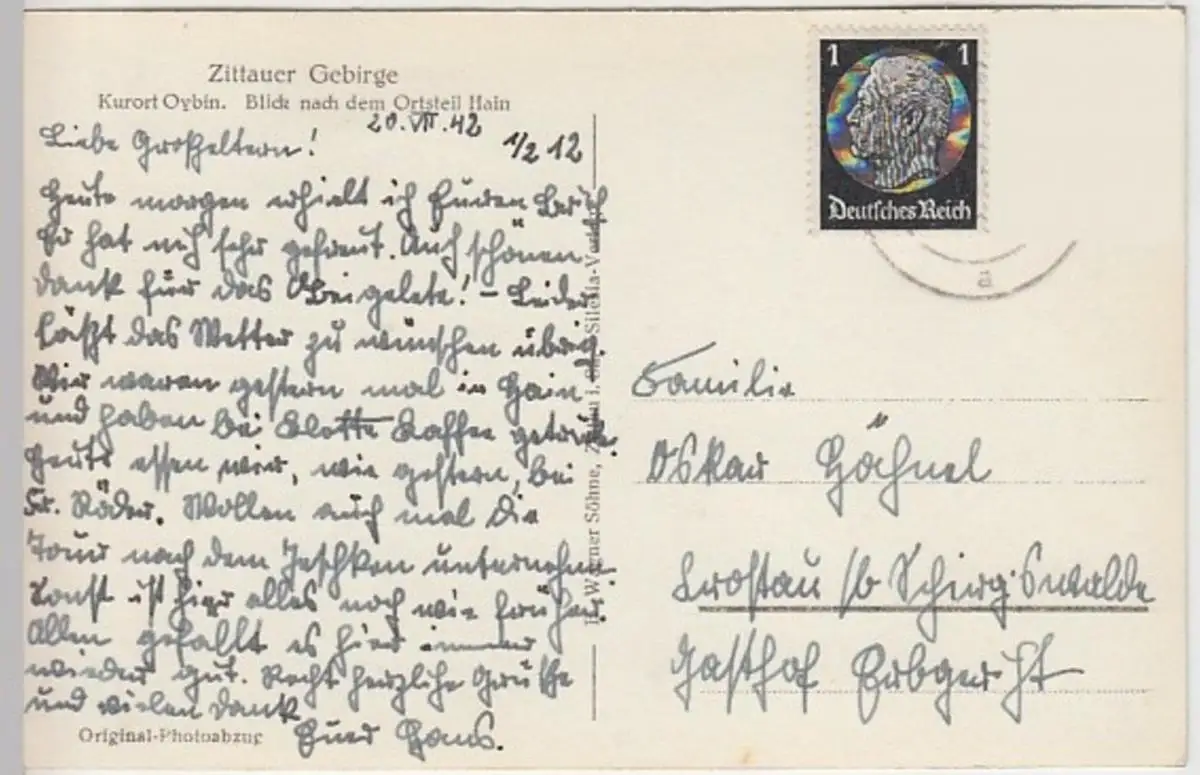 Zittauer Gebirge
Kurort Oybin. Blick nach dem Ortsteil Hain
20. VII. 42
1/2 12
Liebe Großeltern!
Heute morgen erhielt ich Euren
Er hat mich sehr gefreut. Auch schönen
Dank für das Beigelete! - Leider
läßt das Wetter zu wünschen übrig.
Wir waren gestern mal in Hain
und haben bei Klotte Kaffee
Heute essen wir, wie gestern, bei
Fr. Röder. Wollen auch mal die
Tour nach dem Jeschken unternehmen.
Sonst ist hier alles noch wie früher.
Allen gefällt es hier immer
wieder gut. Recht herzliche Grüße
und vielen Dank
Euer Hans.
Original-Photoabzug
Werner Söhne, Silesia
1 1
Deutsches Reich
a
Familie
Oskar Hähnel
Crostau /b Schirgiswalde
Gasthof Erbgericht